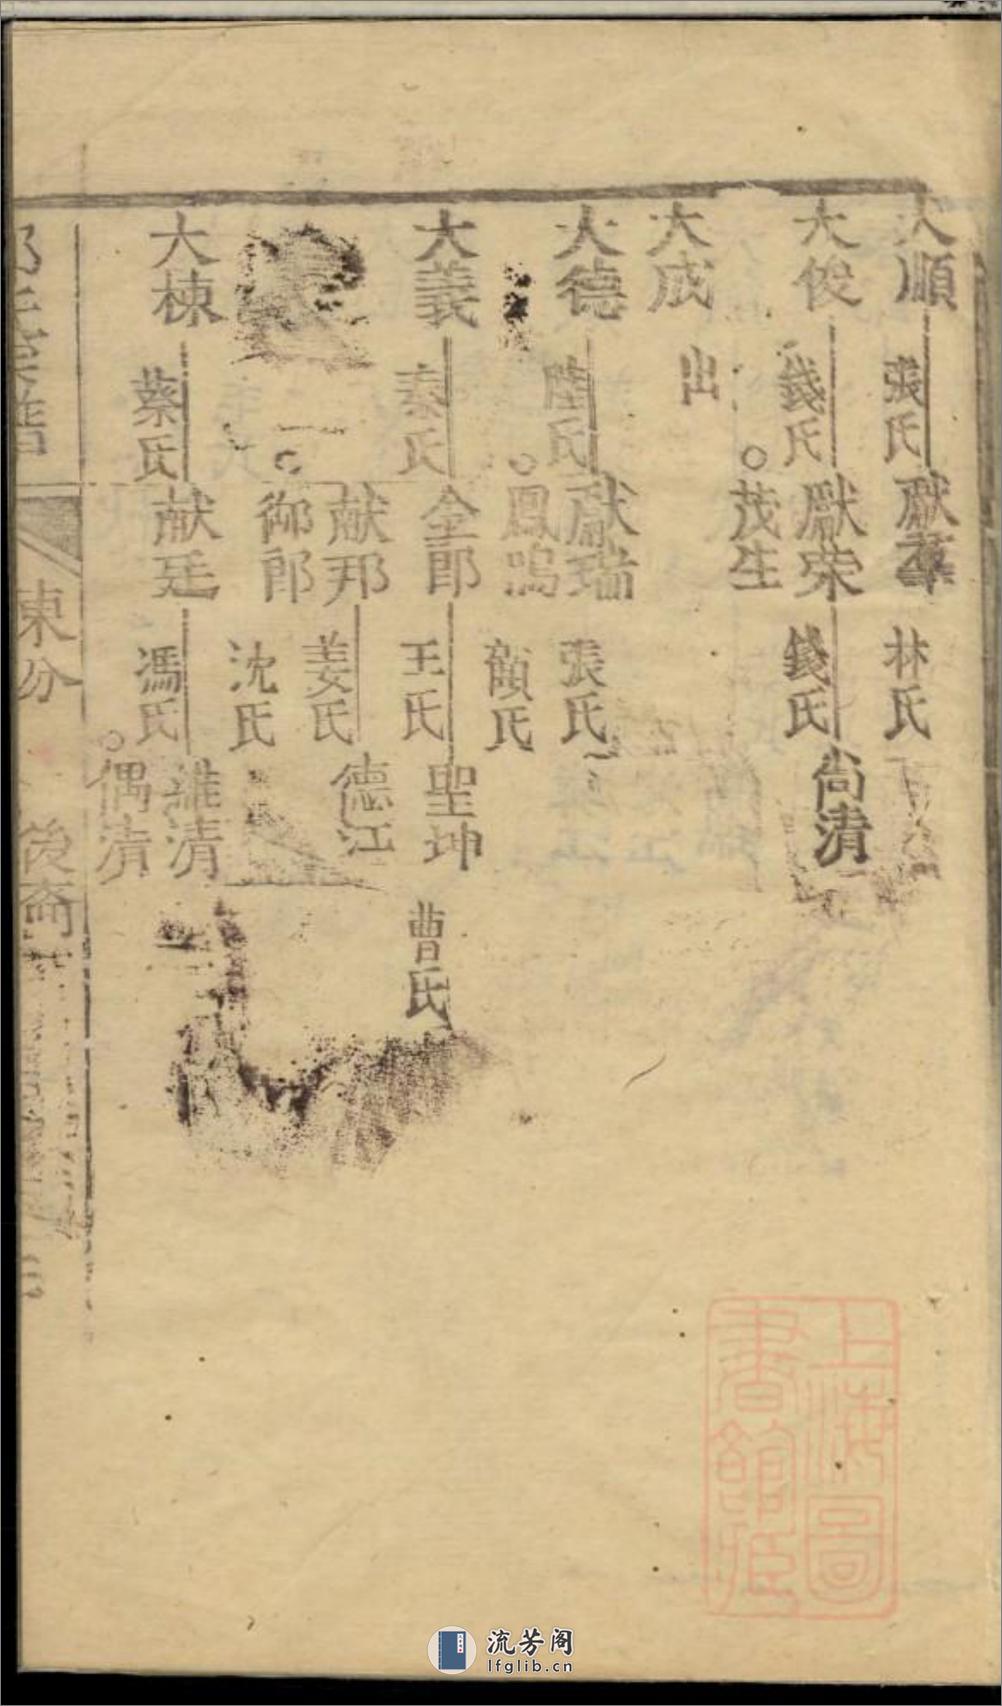 大順
張氏
林氏
大俊
錢氏
獻荣
錢氏
尚清
茂生
大成
出
大德
陸氏
獻瑞
張氏
鳳鳴
顧氏
大義
秦氏
全郎
王氏
聖坤
曹氏
献邦
姜氏
德江
御郎
沈氏
大棟
蔡氏
献廷
馮氏
維清
偶清
東分
後裔
上海圖
書館藏
流芳阁
lfglib.cn